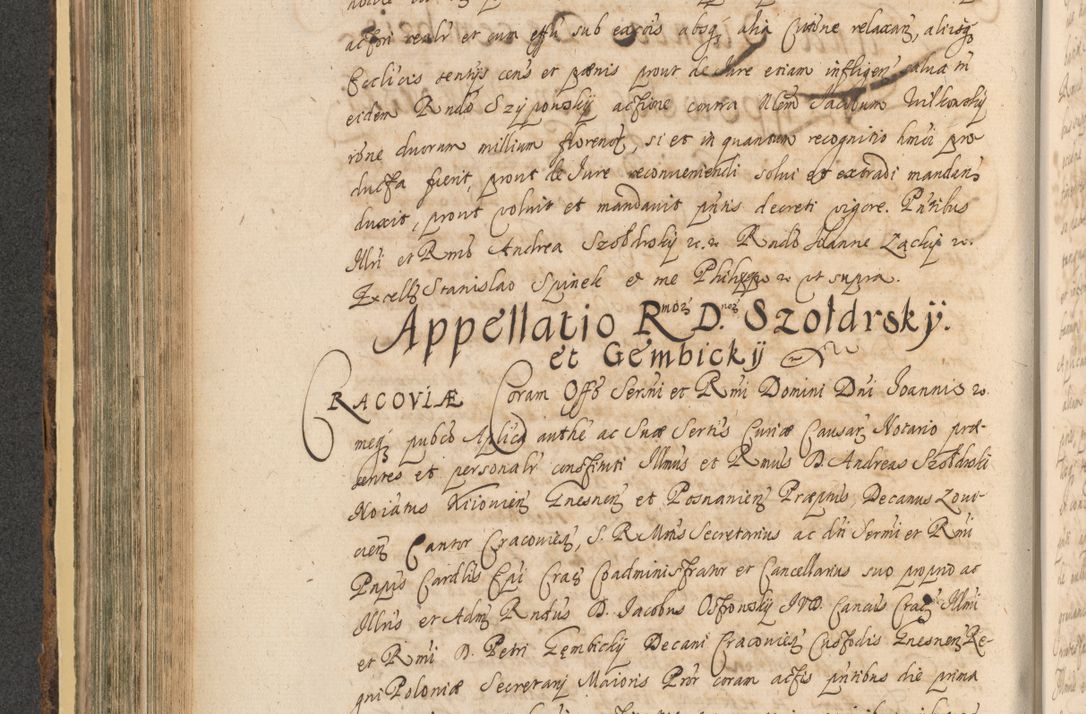 actori reali et cum effu sub excõis absq alia Curõne relaxan, aliisq
Ecclicis sentijs cens et pœnis prout de Iure etiam infligen, salua tñ
eidem Rndo Szyponsky actione contra Nlem Jacobum Wilkowsky
rõne duorum millium florenoꝝ, si et in quantum recognitio hmõi pro
ducta fuerit, prout de Iure reconueniendi solui et extradi mandans
duxit, prout voluit et mandauit pñtis decreti vigore. Pñtibus
Illri et Rmo Andrea Szołdrsky &c. &c. Rndo Ioanne Zacky &c.
Excellꝫ Stanislao Spinek et me Philippo &c ut supra.
Appellatio Rmoꝝ D.noꝝ Szołdrskÿ.
et Gembickÿ
CRACOVIÆ Coram Offo Sermi et Rmi Domini Dñi Ioannis &c.
meqꝫ pubco Aplica authe ac Suæ Sertis Curiæ Causaꝝ Notario præ-
sentes et personalr constituti Illmus et Rmus D. Andreas Szołdrski
Noiatus Kiiouienꝫ Gnesnenꝫ et Posnanienꝫ Præptus, Decanus Loui-
cienꝫ Cantor Cracouienꝫ, S. R. Mtis Secretarius ac dñi Sermi et Rmi
Pnpis Cardlis Epi Cracꝫ Coadministrator et Cancellarius suo proprio ac
Illris et Admꝫ Rndus D. Jacobus Ostrowsky IVD. Cancus Cracꝫ Illmi
et Rmi D. Petri Gembicky Decani Cracouienꝫ Custodis Gnesnenꝫ Re-
gni Poloniæ Secretarij Maioris Pror coram actis pñtibus die prima